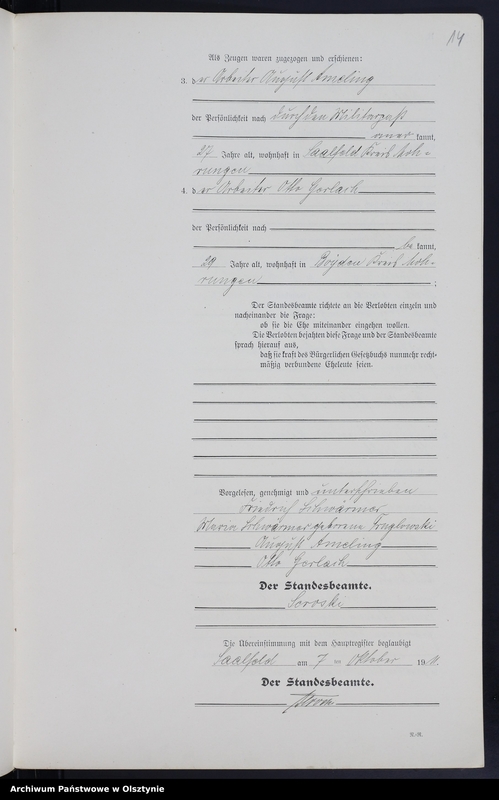 14
Als Zeugen waren zugezogen und erschienen:
3. der Arbeiter August Ameling
der Persönlichkeit nach durch den Militärpaß
aner kannt,
27 Jahre alt, wohnhaft in Saalfeld Kreis Moh-
rungen
4. der Arbeiter Otto Gerlach
der Persönlichkeit nach
be kannt,
29 Jahre alt, wohnhaft in Boyden Kreis Moh-
rungen ;
Der Standesbeamte richtete an die Verlobten einzeln und
nacheinander die Frage:
ob sie die Ehe miteinander eingehen wollen.
Die Verlobten bejahten diese Frage und der Standesbeamte
sprach hierauf aus,
daß sie kraft des Bürgerlichen Gesetzbuchs nunmehr recht-
mäßig verbundene Eheleute seien.
Vorgelesen, genehmigt und unterschrieben
Friedrich Schwärmer
Maria Schwärmer geborene
August Ameling
Otto Gerlach
Der Standesbeamte.
Soroski
Die Übereinstimmung mit dem Hauptregister beglaubigt
Saalfeld am 7 ten Oktober 1911.
Der Standesbeamte.
Archiwum Państwowe w Olsztynie